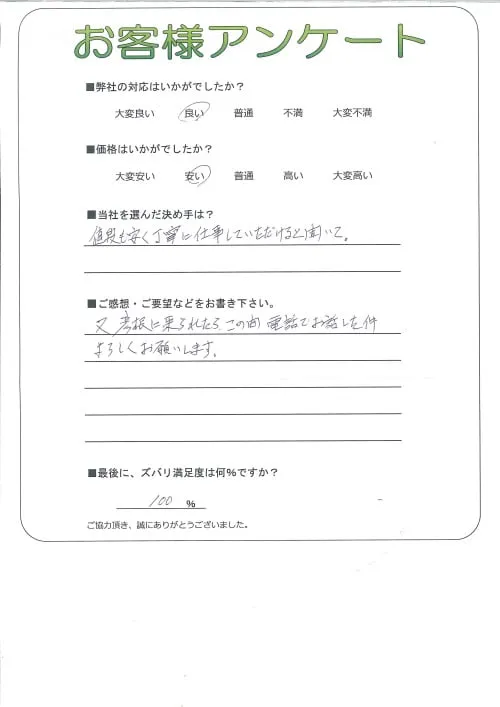 お客様アンケート
■弊社の対応はいかがでしたか？
大変良い 良い 普通 不満 大変不満
■価格はいかがでしたか？
大変安い 安い 普通 高い 大変高い
■当社を選んだ決め手は？
値段も安く丁寧に仕事していただけると聞いて。
■ご感想・ご要望などをお書き下さい。
又彦根に来られたら、この間電話でお話した件
よろしくお願いします。
■最後に、ズバリ満足度は何%ですか？
100 %
ご協力頂き、誠にありがとうございました。